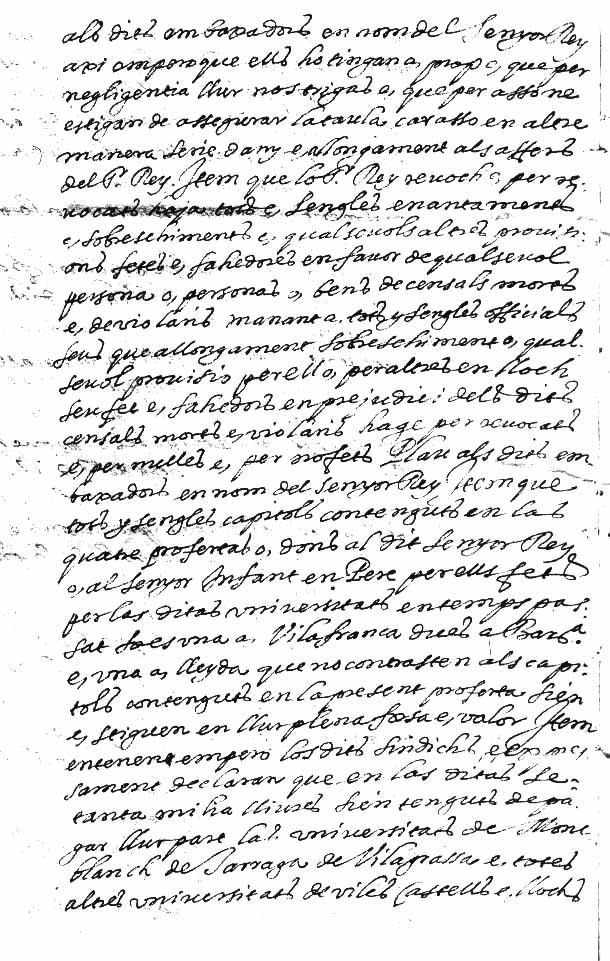 als dits ambaxadors en nom del Senyor Rey
axi empero que ells ho tingan a, prop e, que per
negligentia llur nos trigas e, que per asso ne
estigan de assegurar la taula car asso en altre
manera serie dany e, allongament als affers
del Sr. Rey. Item que lo Sr. Rey revoch e, per re,
vocats haja tots e, sengles enantaments
e, sobreschiments e, qualsevols altres provisi,
ons fetes e, fahedores en favor de qualsevol
persona o, personas o, bens de censals morts
e, de violaris manant a tots y sengles officials
seus que allongament sobreschiment o, qual.
sevol provisio per ell o, per altres en lloch
seu fet e, fahedors en prejudici dels dits
censals morts e, violaris hage per revocats
e, per nulles e, per no fets Plau als dits em
baxadors en nom del Senyor Rey Item que
tots y sengles capitols contenguts en las
quatre profertas o, dons al dit Senyor Rey
o, al Senyor Infant en Pere per ells fets
per las ditas universitats en temps pas.
sat so es una a, Vilafranca dues a Barna.
e, una a, lleyda que no contrasten als capi,
tols contenguts en la present proferta sien
e, stiguen en llur plena forsa e, valor Item
entenent empero los dits sindichs, e expres,
sament declaran que en las ditas se-
tanta milia lliures sien tenguts de pa
gar llur part las universitats de Mont
blanch de Sarraga de Vilagrassa e, totes
altres universitats de viles Castells e, llochs